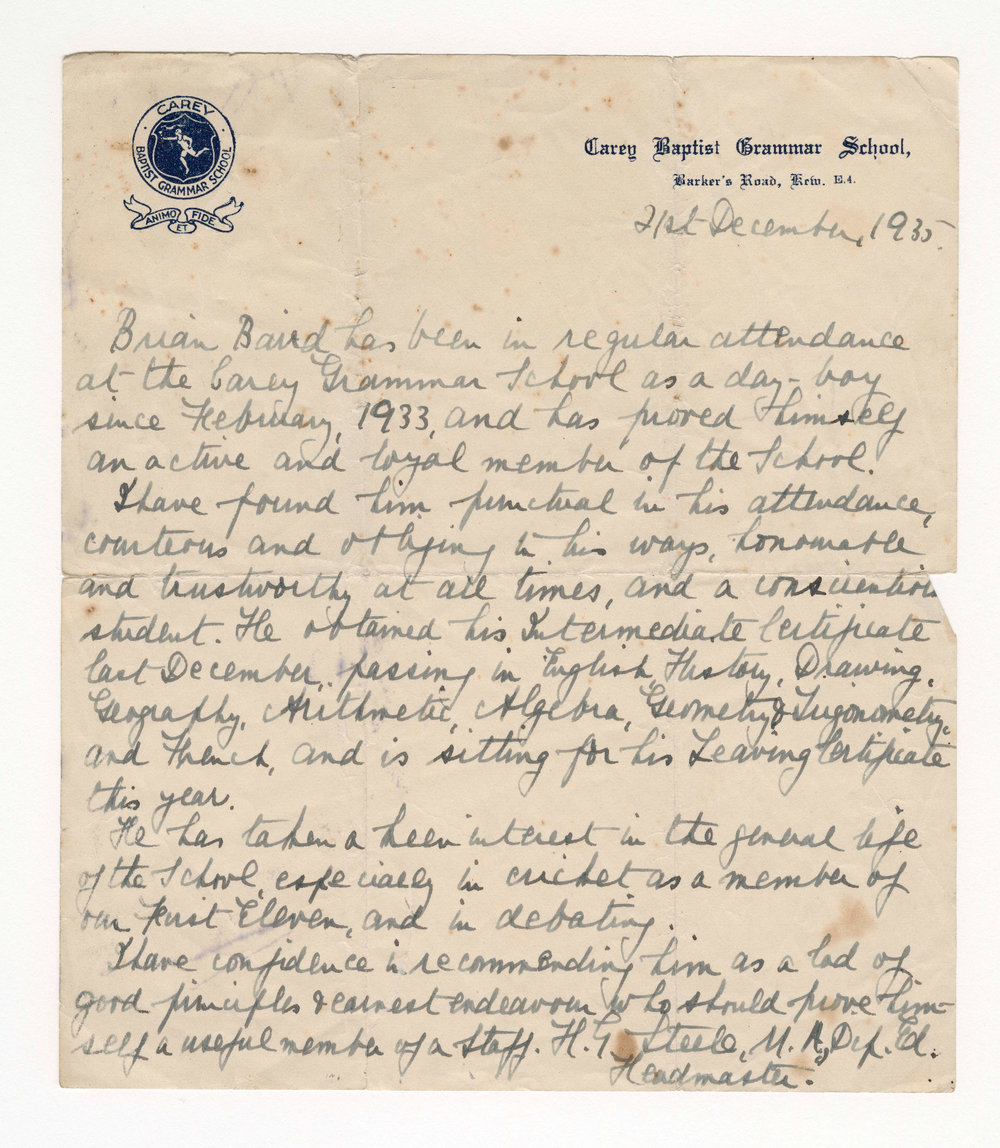 CAREY
BAPTIST GRAMMAR SCHOOL
ANIMO ET FIDE
Carey Baptist Grammar School,
Barker's Road, Kew. E.4.
21st December, 1935.
Brian Baird has been in regular attendance
at the Carey Grammar School as a day-boy
since February, 1933, and has proved himself
an active and loyal member of the School.
I have found him punctual in his attendance,
courteous and obliging in his ways, honourable
and trustworthy at all times, and a conscientious
student. He obtained his Intermediate Certificate
last December, passing in English, History, Drawing,
Geography, Arithmetic, Algebra, Geometry & Trigonometry,
and French, and is sitting for his Leaving Certificate
this year.
He has taken a keen interest in the general life
of the School, especially in cricket as a member of
our First Eleven, and in debating.
I have confidence in recommending him as a lad of
good principles & earnest endeavour who should prove him-
self a useful member of a Staff. H. G. Steele, M.A., Dip. Ed.
Headmaster.